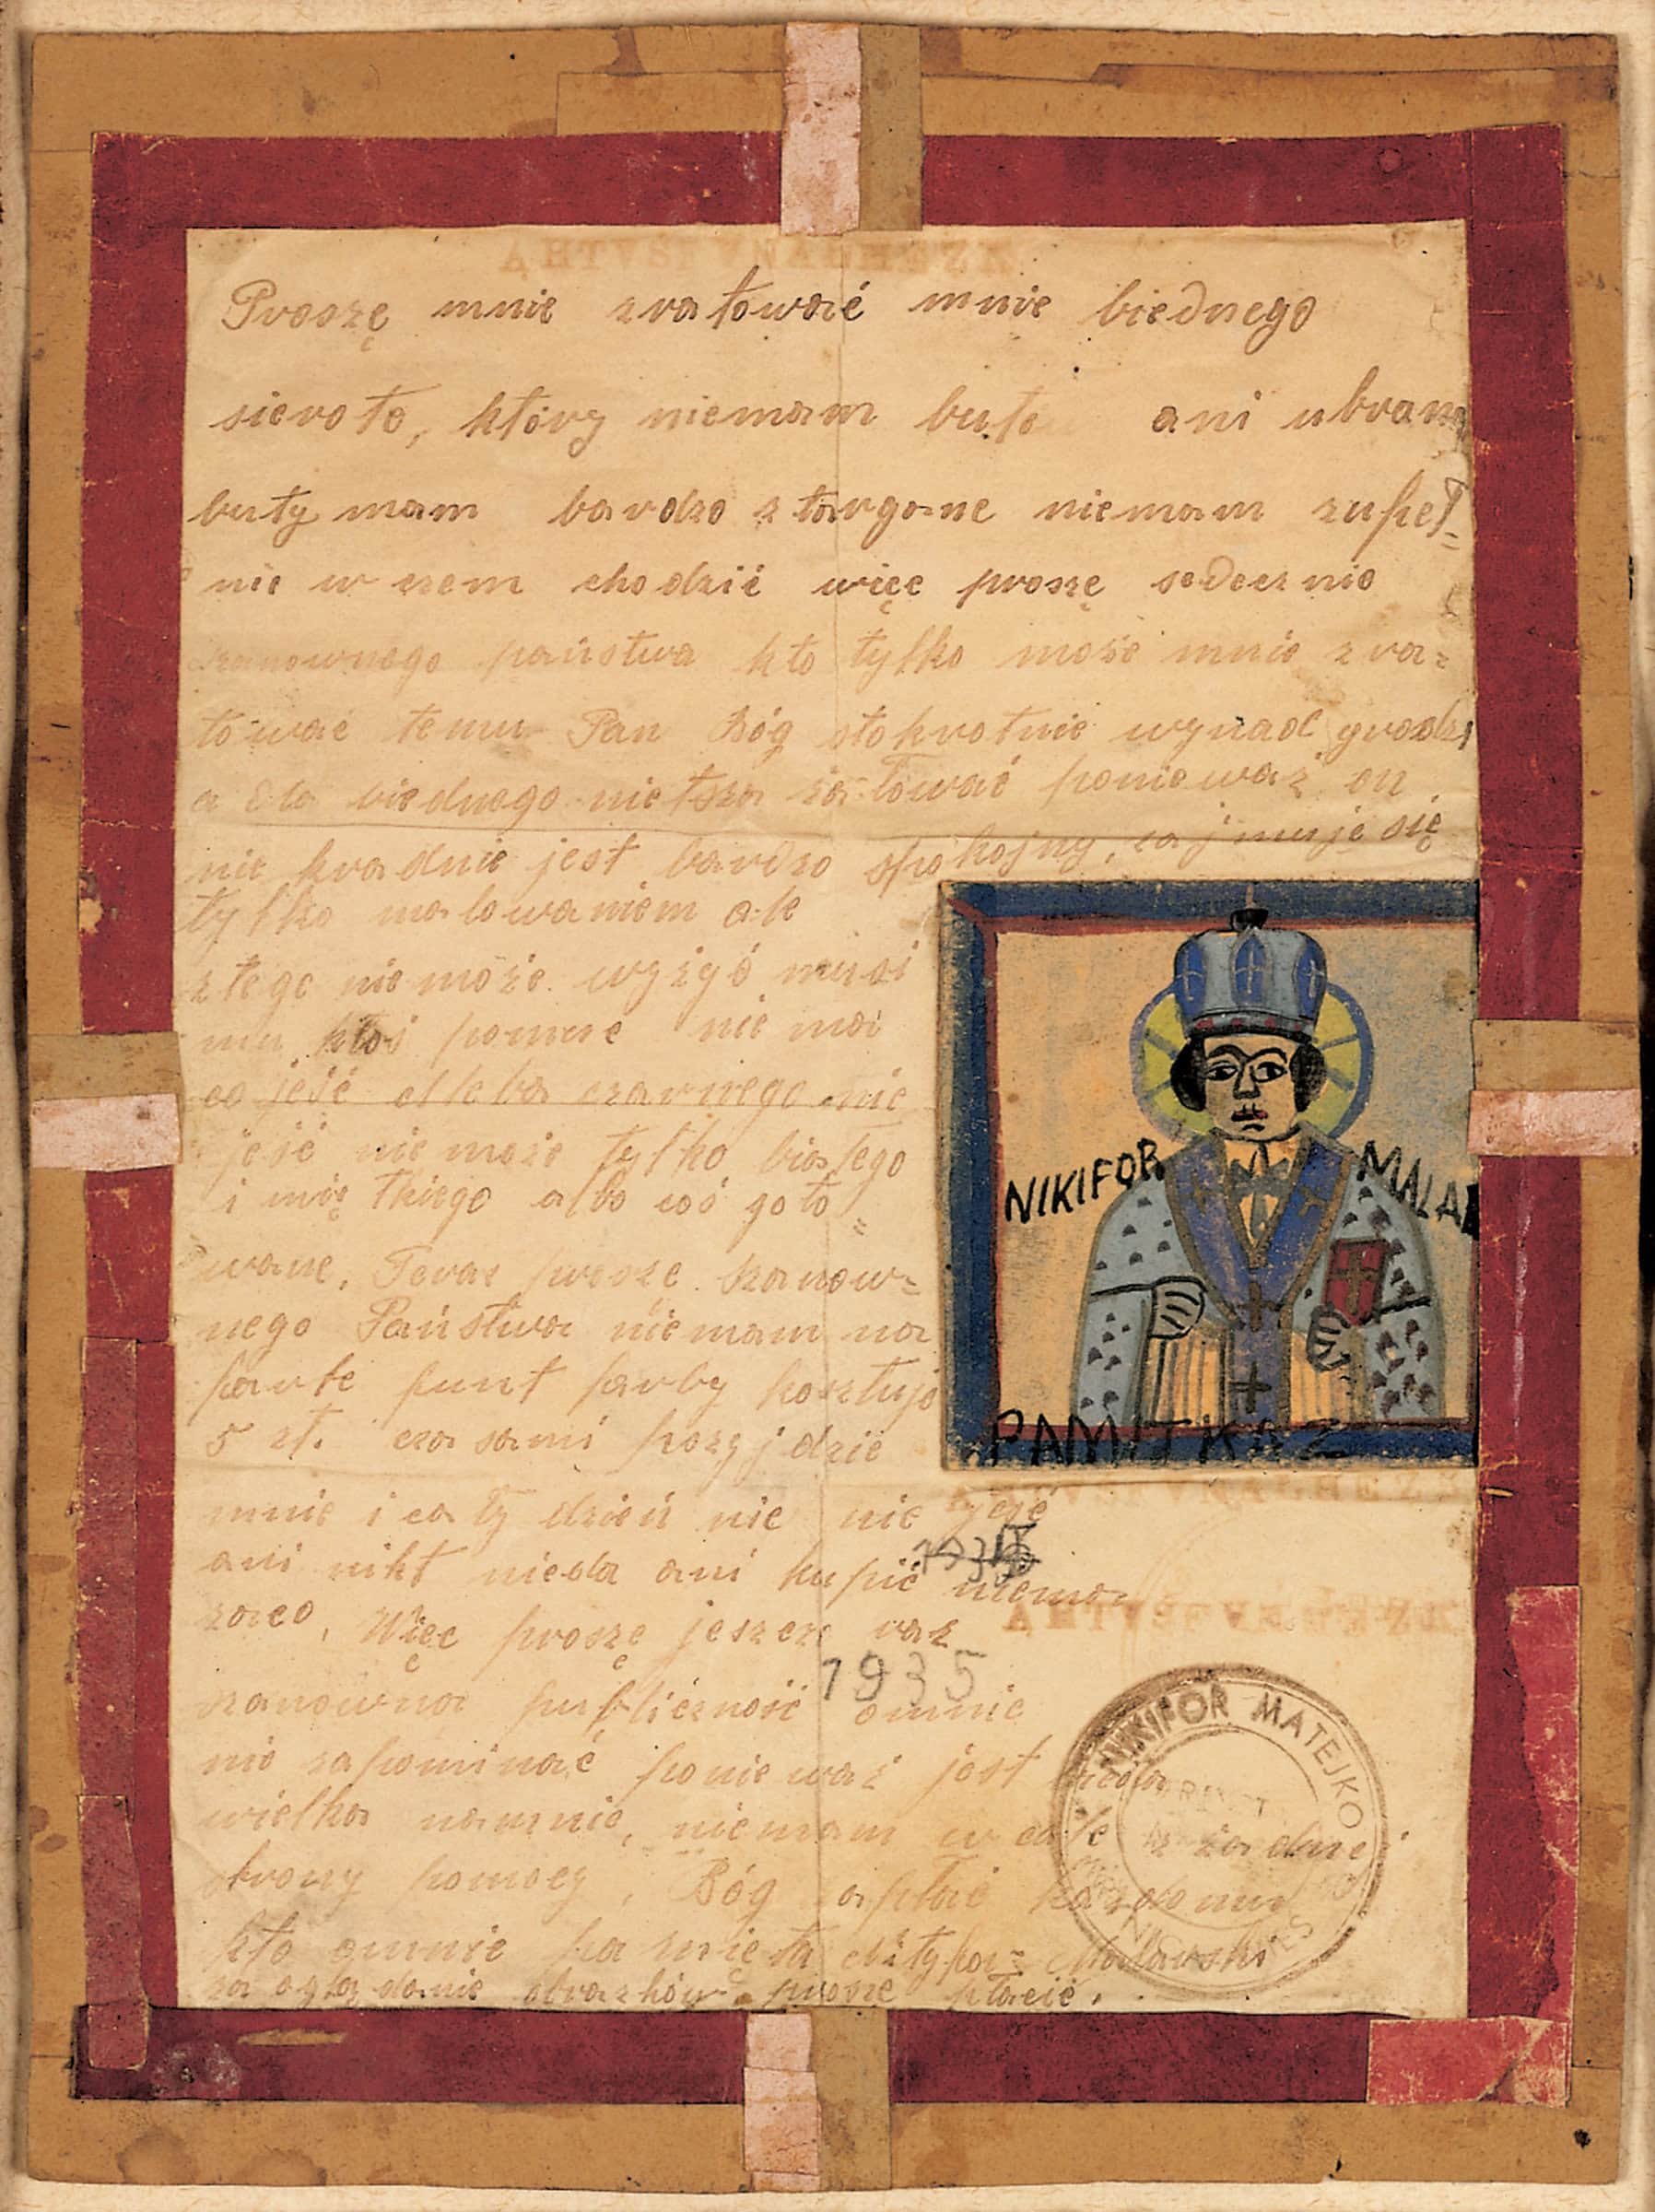 Proszę mnie zratować mnie biednego
sierote, który niemam buto ani ubran
buty mam bardzo ztargane niemam zupeł=
nie w czem chodzić więc proszę sedecznie
szanownego państwa kto tylko może mnie zra=
tować temu Pan Bóg stokrotnie wynadgrodzi
a dla biednego nietsza żałować ponieważ on
nie kradnie jest bardzo spokojny, zajmuje się
tylko malowaniem ale
z tego niemoże wyżyć musi
mu ktoś pomuc nie ma
co jeść chleba czarnego nie
jeść nie może tylko białego
i miętkiego albo coś goto=
wane. Teraz proszę szanow=
nego Państwa niemam na
farbe funt farby kosztuje
5 zł. czasami przyjdzie
mnie i cały dzień nic nie jeść
ani nikt nieda ani kupić niema
zaco. Więc proszę jeszcze raz
szanowna publiczność omnie
nie zapominać ponieważ jest bieda
wielka namnie, niemam w cale z żadnej
strony pomocy. Bóg zapłać każdemu
kto omnie pamięta Nityfor= Matawski
za oglądanie obrazków proszę płacić.
NIKIFOR MALA
PAMITKAZ
1935
1935
NIKIFOR MATEJKO